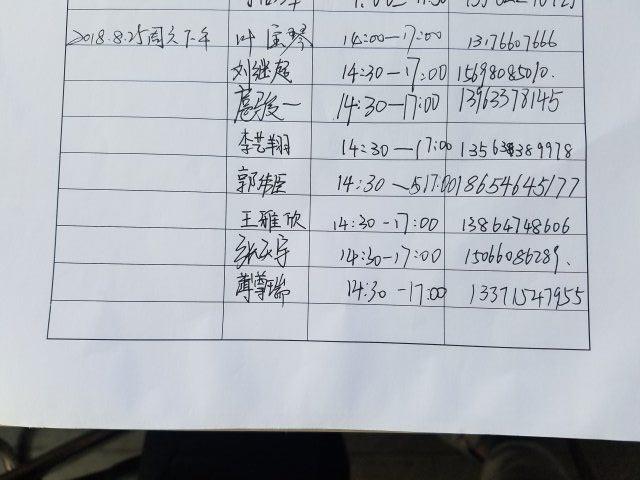 2018.8.25周六下午 叶宝琴 14:00—17:00 13176607666
刘继超 14:30—17:00 15698085010.
14:30—17:00 13963378145
李艺翔 14:30—17:00 13563389978
14:30—17:00 18654645177
王雅欣 14:30-17:00 13864748606
14:30-17:00 15066086289.
14:30-17:00 13371547955